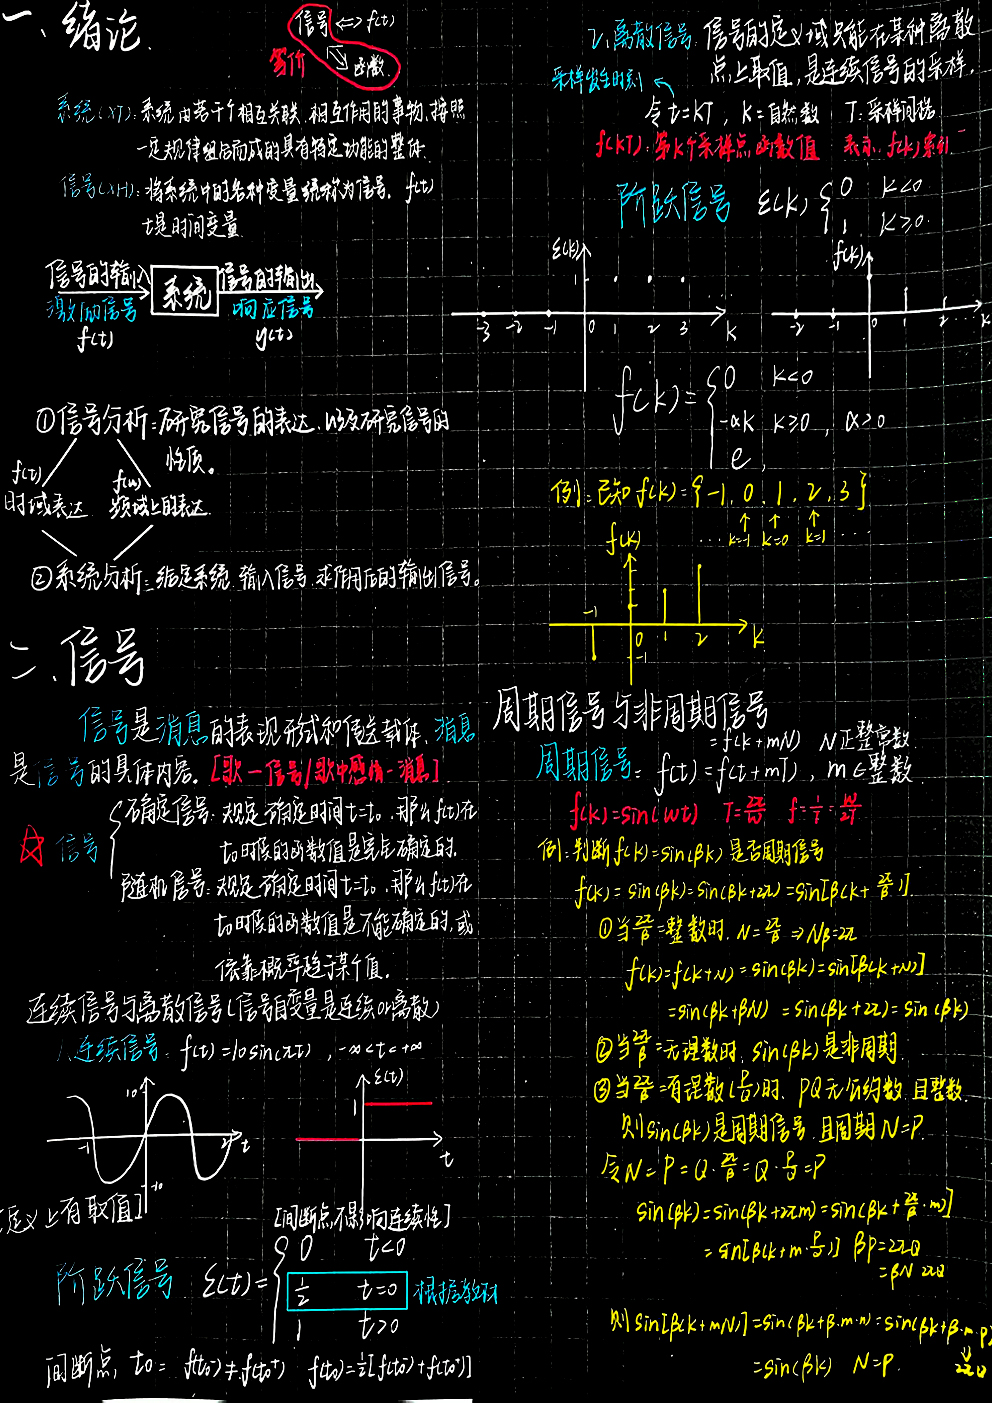 一、绪论.
信号 <=> f(t)
等价
函数
系统(XT): 系统由若干个相互关联.相互作用的事物.按照
一定规律组合而成的具有特定功能的整体.
信号(XH): 将系统中的各种变量统称为信号. f(t)
t是时间变量.
信号的输入
系统
信号的输出
激励信号
响应信号
f(t)
y(t)
①信号分析:研究信号的表达.以及研究信号的
性质。
f(t)
f(w)
时域表达
频域上的表达
②系统分析:给定系统.输入信号.求作用后的输出信号。
二.信号
信号是消息的表现形式和传送载体.消息
是信号的具体内容.[歌-信号/歌中感情-消息]
确定信号.规定确定时间t=t₀.那么f(t)在
☆ 信号
t₀时候的函数值是完全确定的.
随机信号.规定确定时间t=t₀.那么f(t)在
t₀时候的函数值是不能确定的,或
依靠概率趋于某个值.
连续信号与离散信号(信号自变量是连续or离散)
1.连续信号. f(t)=10sin(πt) , -∞<t<+∞
10
-1
2 t
-10
ε(t)
1
t
定义上有取值]
[间断点,不影响连续性]
阶跃信号. ε(t)=
0 t<0
1/2 t=0
1 t>0
间断点, t₀= f(t₀⁻)≠f(t₀⁺) f(t₀)=½[f(t₀⁻)+f(t₀⁺)]
2.离散信号.信号的定义域只能在某种离散
点上取值,是连续信号的采样.
采样发生时刻
令t=KT, K=自然数 T:采样间格
f(KT).第K个采样点函数值
阶跃信号 ε(k)
0 k<0
1 k≥0.
ε(k)
1
-3 -2 -1 0 1 2 3 K
f(k)
-2 -1 0 1 2 K
f(k)=
0 k<0
e^-αk k≥0, α>0
例:已知f(k)={-1,0,1,2,3}
... k=-1 k=0 k=1 ...
f(k)
-1
0 1 2 K
-1
周期信号与非周期信号
=f(k+mN) N正整常数
周期信号: f(t)=f(t+mT), m∈整数
f(k)=sin(wt) T=2π/w f=1/T=w/2π
例:判断f(k)=sin(βk)是否周期信号
f(k)=sin(βk)=sin(βk+2π)=sin[β(k+2π/β)].
①当2π/β=整数时. N=2π/β ⇒Nβ=2π
f(k)=f(k+N)=sin(βk)=sin[β(k+N)]
=sin(βk+βN)=sin(βk+2π)=sin(βk)
②当2π/β=无理数时, sin(βk)是非周期.
③当2π/β=有理数(P/Q)时. PQ无公约数.且整数.
则sin(βk)是周期信号.且周期N=P.
令N=P=Q·2π/β=Q·P/Q=P
sin(βk)=sin(βk+2πm)=sin(βk+2π/β·m)]
=sin[β(k+m·P/Q)] βP=2πQ
=βN 2πQ
则sin[β(k+mN)]=sin(βk+β·m·n)=sin(βk+β·m·p)
=sin(βk) N=P.
2πQ